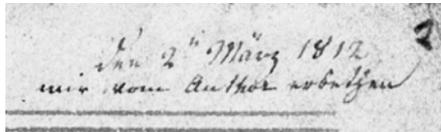 den 2ᵗ März 1812
mir vom Author erbethen